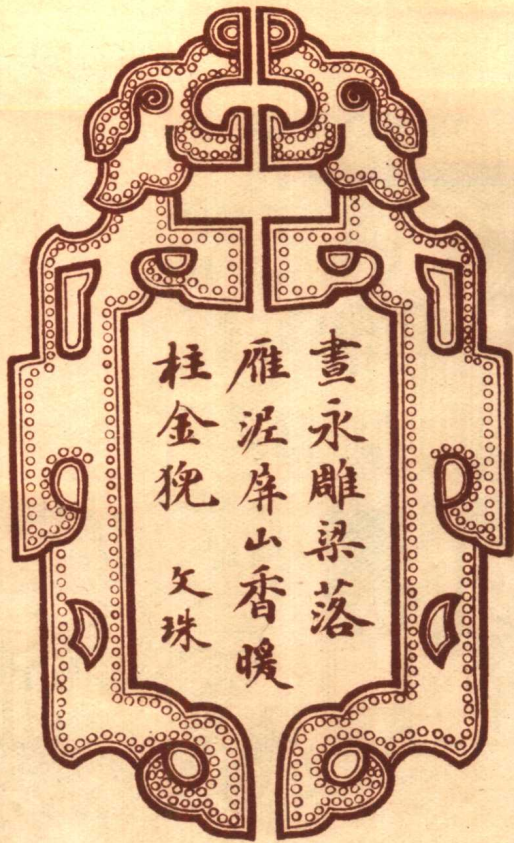 晝永雕梁落
雁泥屏山香暖
柱金猊 文珠